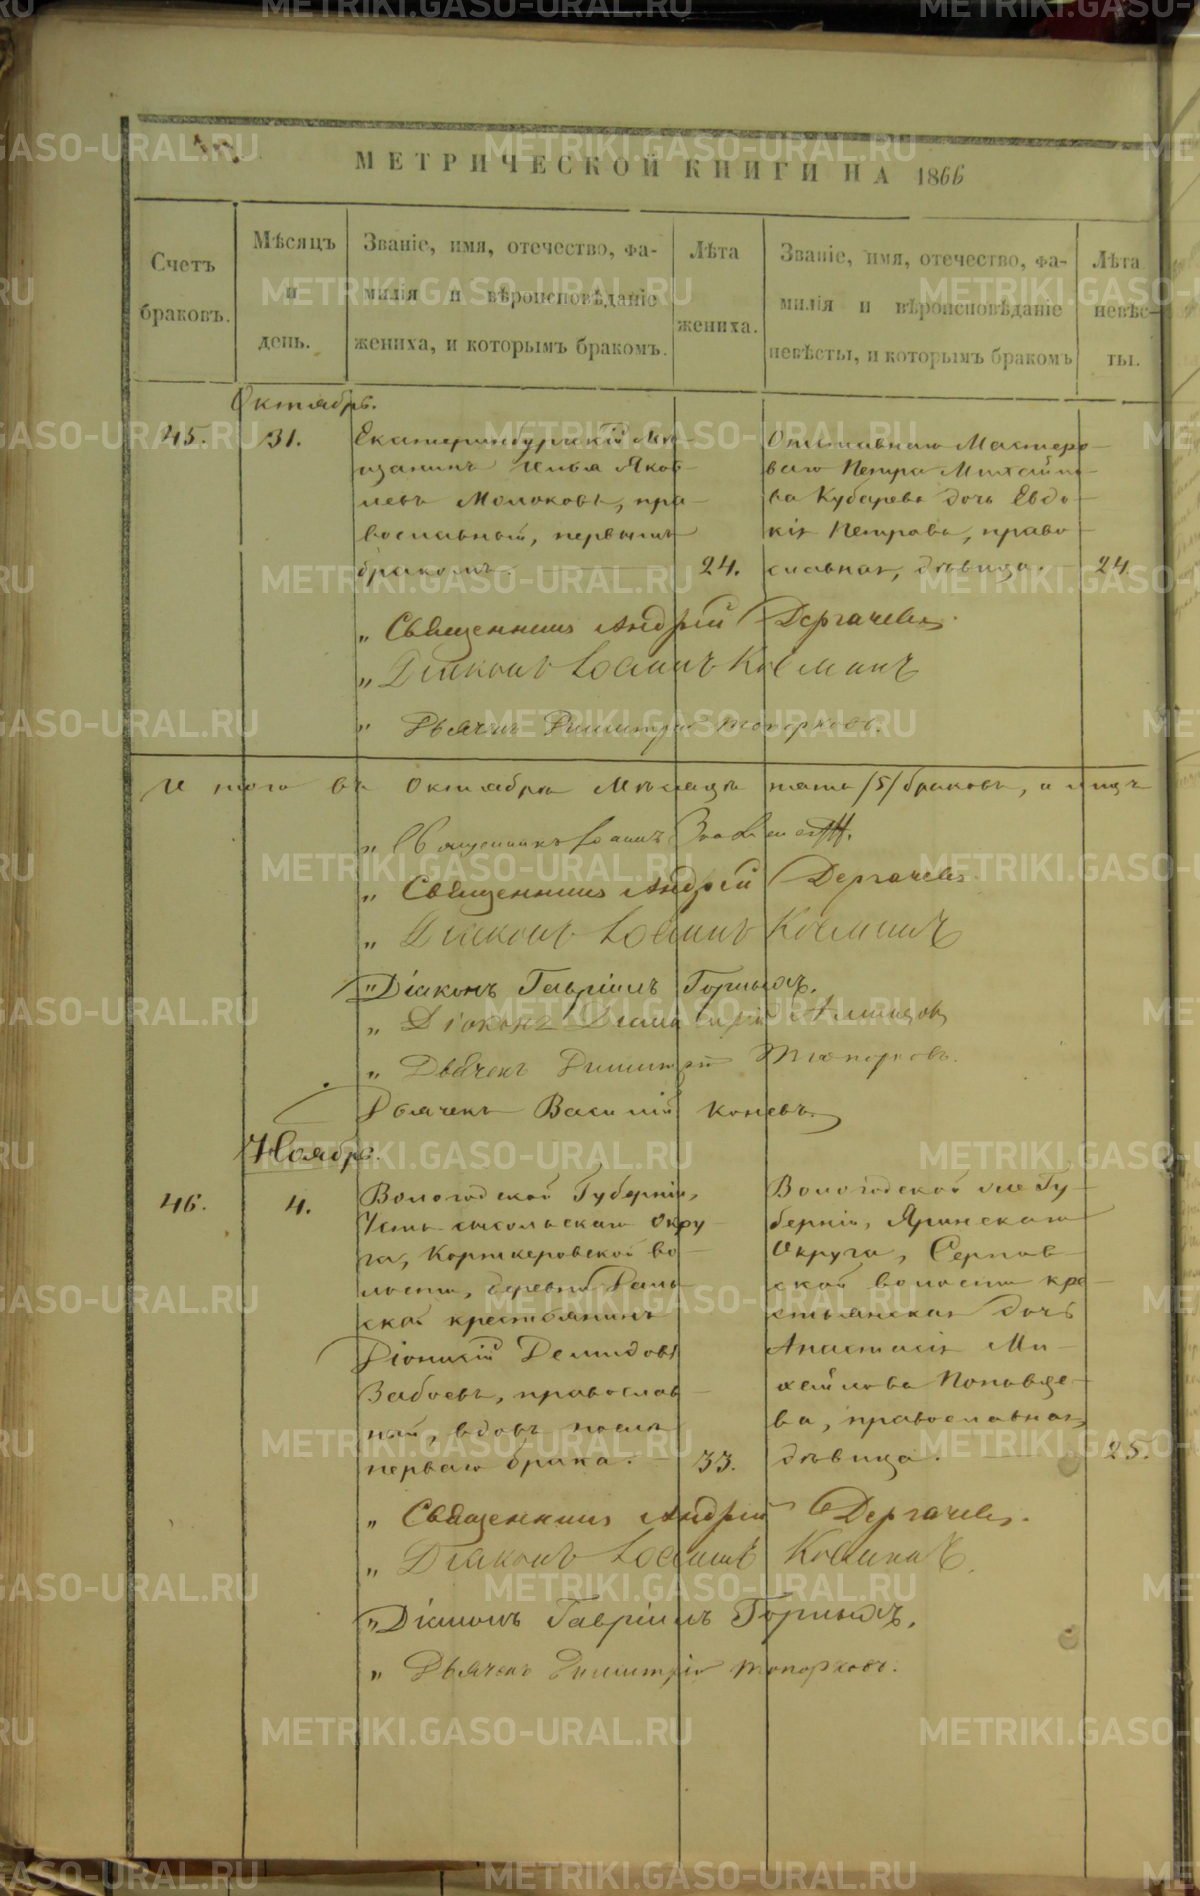 МЕТРИЧЕСКОЙ КНИГИ НА 1866
Счетъ браковъ.
Мѣсяцъ и день.
Званіе, имя, отечество, фа-
милія и вѣроисповѣданіе
жениха, и которымъ бракомъ.
Лѣта жениха.
Званіе, имя, отечество, фа-
милія и вѣроисповѣданіе
невѣсты, и которымъ бракомъ
Лѣта невѣс-
ты.
Октябрь.
45.
31.
Екатеринбургскій Мѣ-
щанинъ Илья Яков-
левъ Молоковъ, пра-
вославный, первымъ
бракомъ.
24.
Мастеро-
ваго Петра Михайло-
ва Кубарева дочь Евдо-
кія Петрова, право-
славная, дѣвица.
24.
„ Священникъ Андрей Дергачевъ.
„ Діаконъ Іоаннъ Косминъ
„ Дьячекъ Димитрій Топорковъ.
Итого въ Октябрѣ Мѣсяцѣ пять /5/ браковъ, а лицъ
„ Священникъ Іоаннъ
„ Священникъ Андрей Дергачевъ
„ Діаконъ Іоаннъ Косминъ
„ Діаконъ Гавріилъ Горныхъ.
„ Діаконъ
„ Дьячекъ Димитрій Топорковъ.
Дьячекъ Василій Коневъ.
Ноябрь.
46.
4.
Вологодской Губерніи,
Усть-сысольскаго Окру-
га, Корткеровской во-
лости, деревни
ской крестьянинъ
Діонисій Демидовъ
Забоевъ, православ-
ный, вдовъ послѣ
перваго брака.
33.
Вологодской же Гу-
берніи, Яринскаго
Округа, Серегов-
ской волости кре-
стьянская дочь
Анастасія Ми-
хайлова Поповце-
ва, православная,
дѣвица.
25.
„ Священникъ Андрей Дергачевъ.
„ Діаконъ Іоаннъ Косминъ.
„ Діаконъ Гавріилъ Горныхъ.
„ Дьячекъ Димитрій Топорковъ.
METRIKI.GASO-URAL.RU